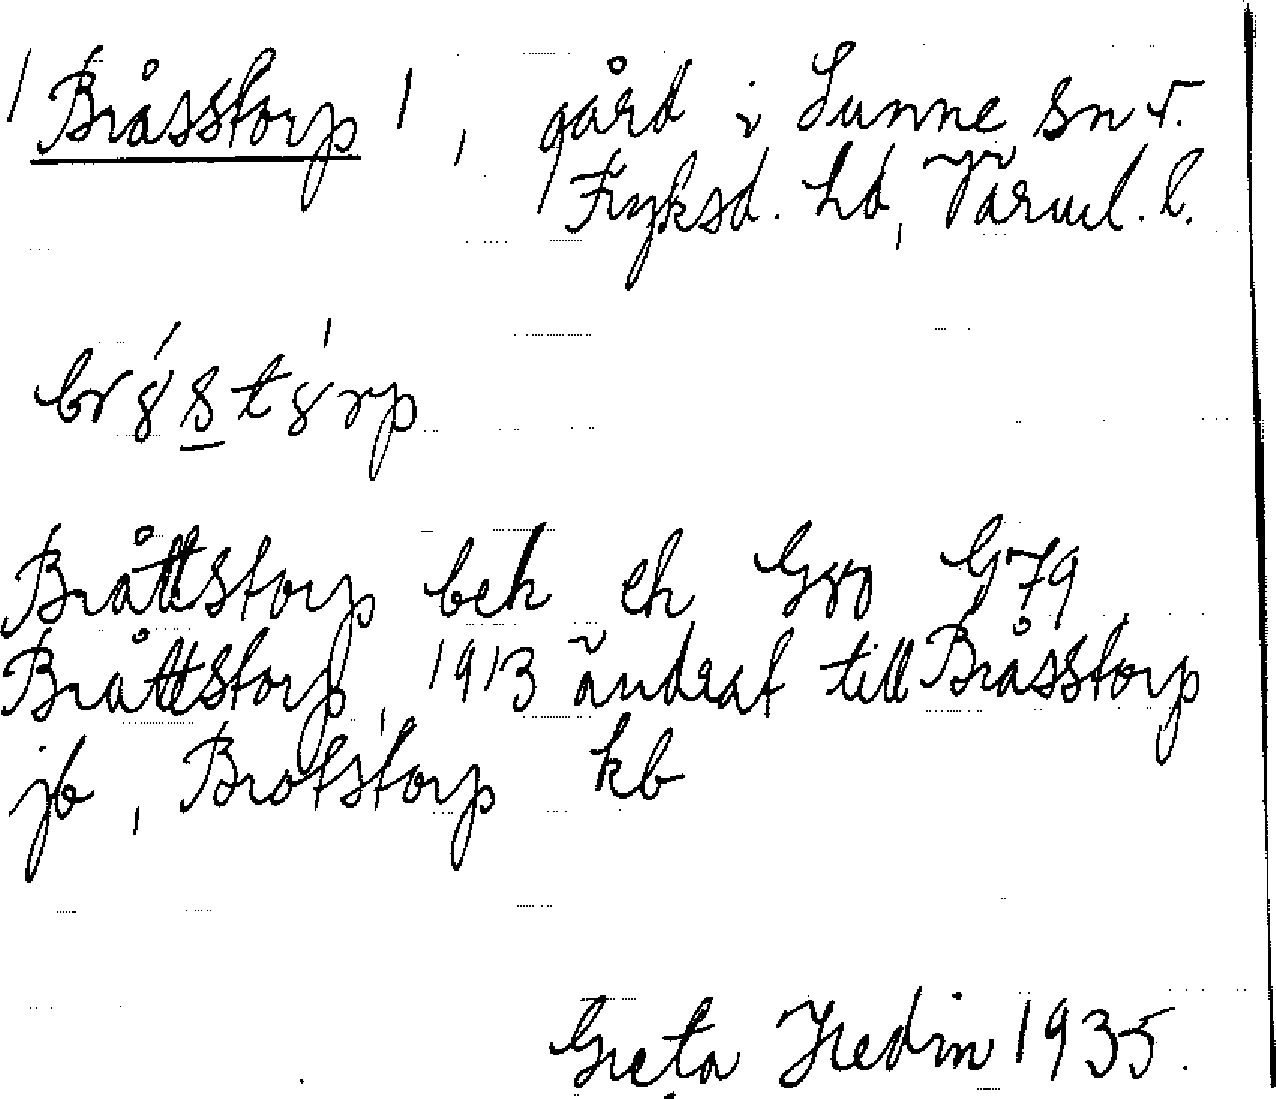 /Bråsstorp/, gård i Sunne sn v.
Fryksd. hd, Värml. l.
br
Bråttstorp bek ek G79
Bråttstorp, 1913 ändrat till Bråsstorp
jb, Brotstorp kb
Greta Hedin 1935.